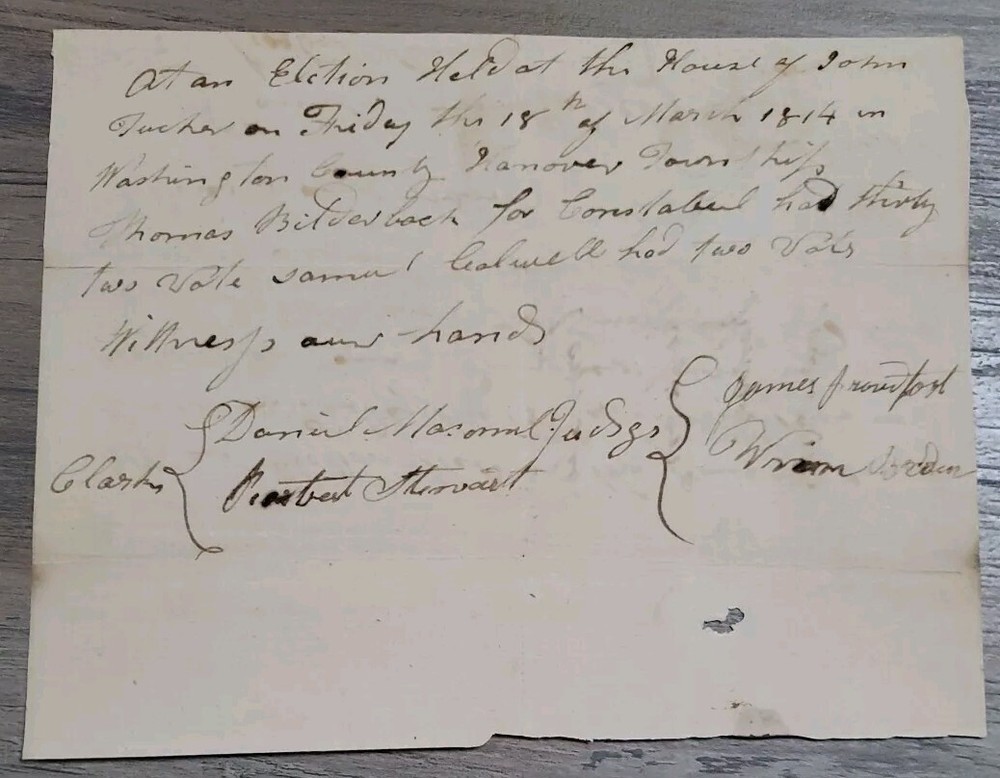 At an Elction Held at the House of John
Tucker on Friday the 18th of March 1814 in
Washington County Hanover Township
Thomas Bilderback for Constabeul had thirty
two Vote Samuel Calwell had two Vots
Wittness our hands
Clarks { Daniel Judgs { James
Robert Stewart